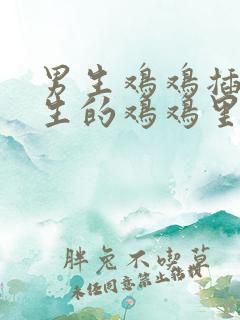 男生鸡鸡插
生的鸡鸡里
胖兔不喫草
未经同意禁止转载